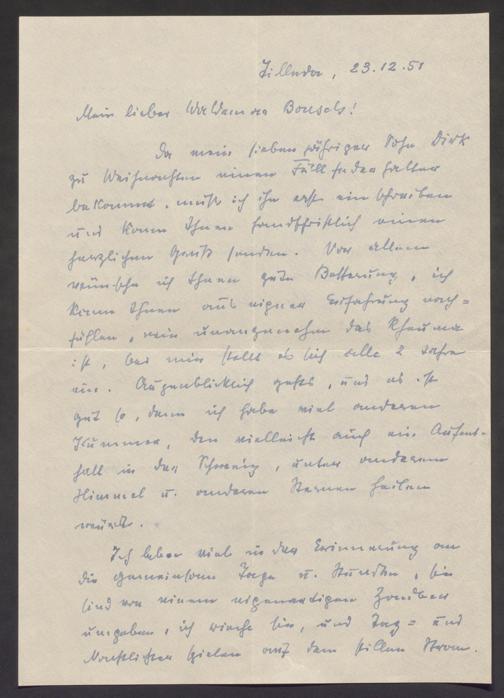 Zilledor, 23.12.51
Mein lieber Waldemar Bonsels!
Da mein siebenjähriger Sohn Dirk
zu Weihnachten einen Füllfederhalter
bekommt, muss ich ihn erst einschreiben
und kann Ihnen handschriftlich einen
herzlichen Gruß senden. Vor allem
wünsche ich Ihnen gute Besserung, ich
kann Ihnen aus eigner Erfahrung nach=
fühlen, wie unangenehm das Rheuma
ist, bei mir stellt es sich alle 2 Jahre
ein. Augenblicklich gehts, und es ist
gut so, denn ich habe viel anderen
Kummer, den vielleicht auch ein Aufent-
halt in der Schweiz, unter anderem
Himmel u. anderen Sternen heilen
würde.
Ich lebe viel in der Erinnerung an
die gemeinsam Tage u. Stunden, sie
sind von einem eigenartigen Zauber
umgeben, ich wiege sie, und Tag= und
Nachtlichter spielen auf dem stillen Strom.